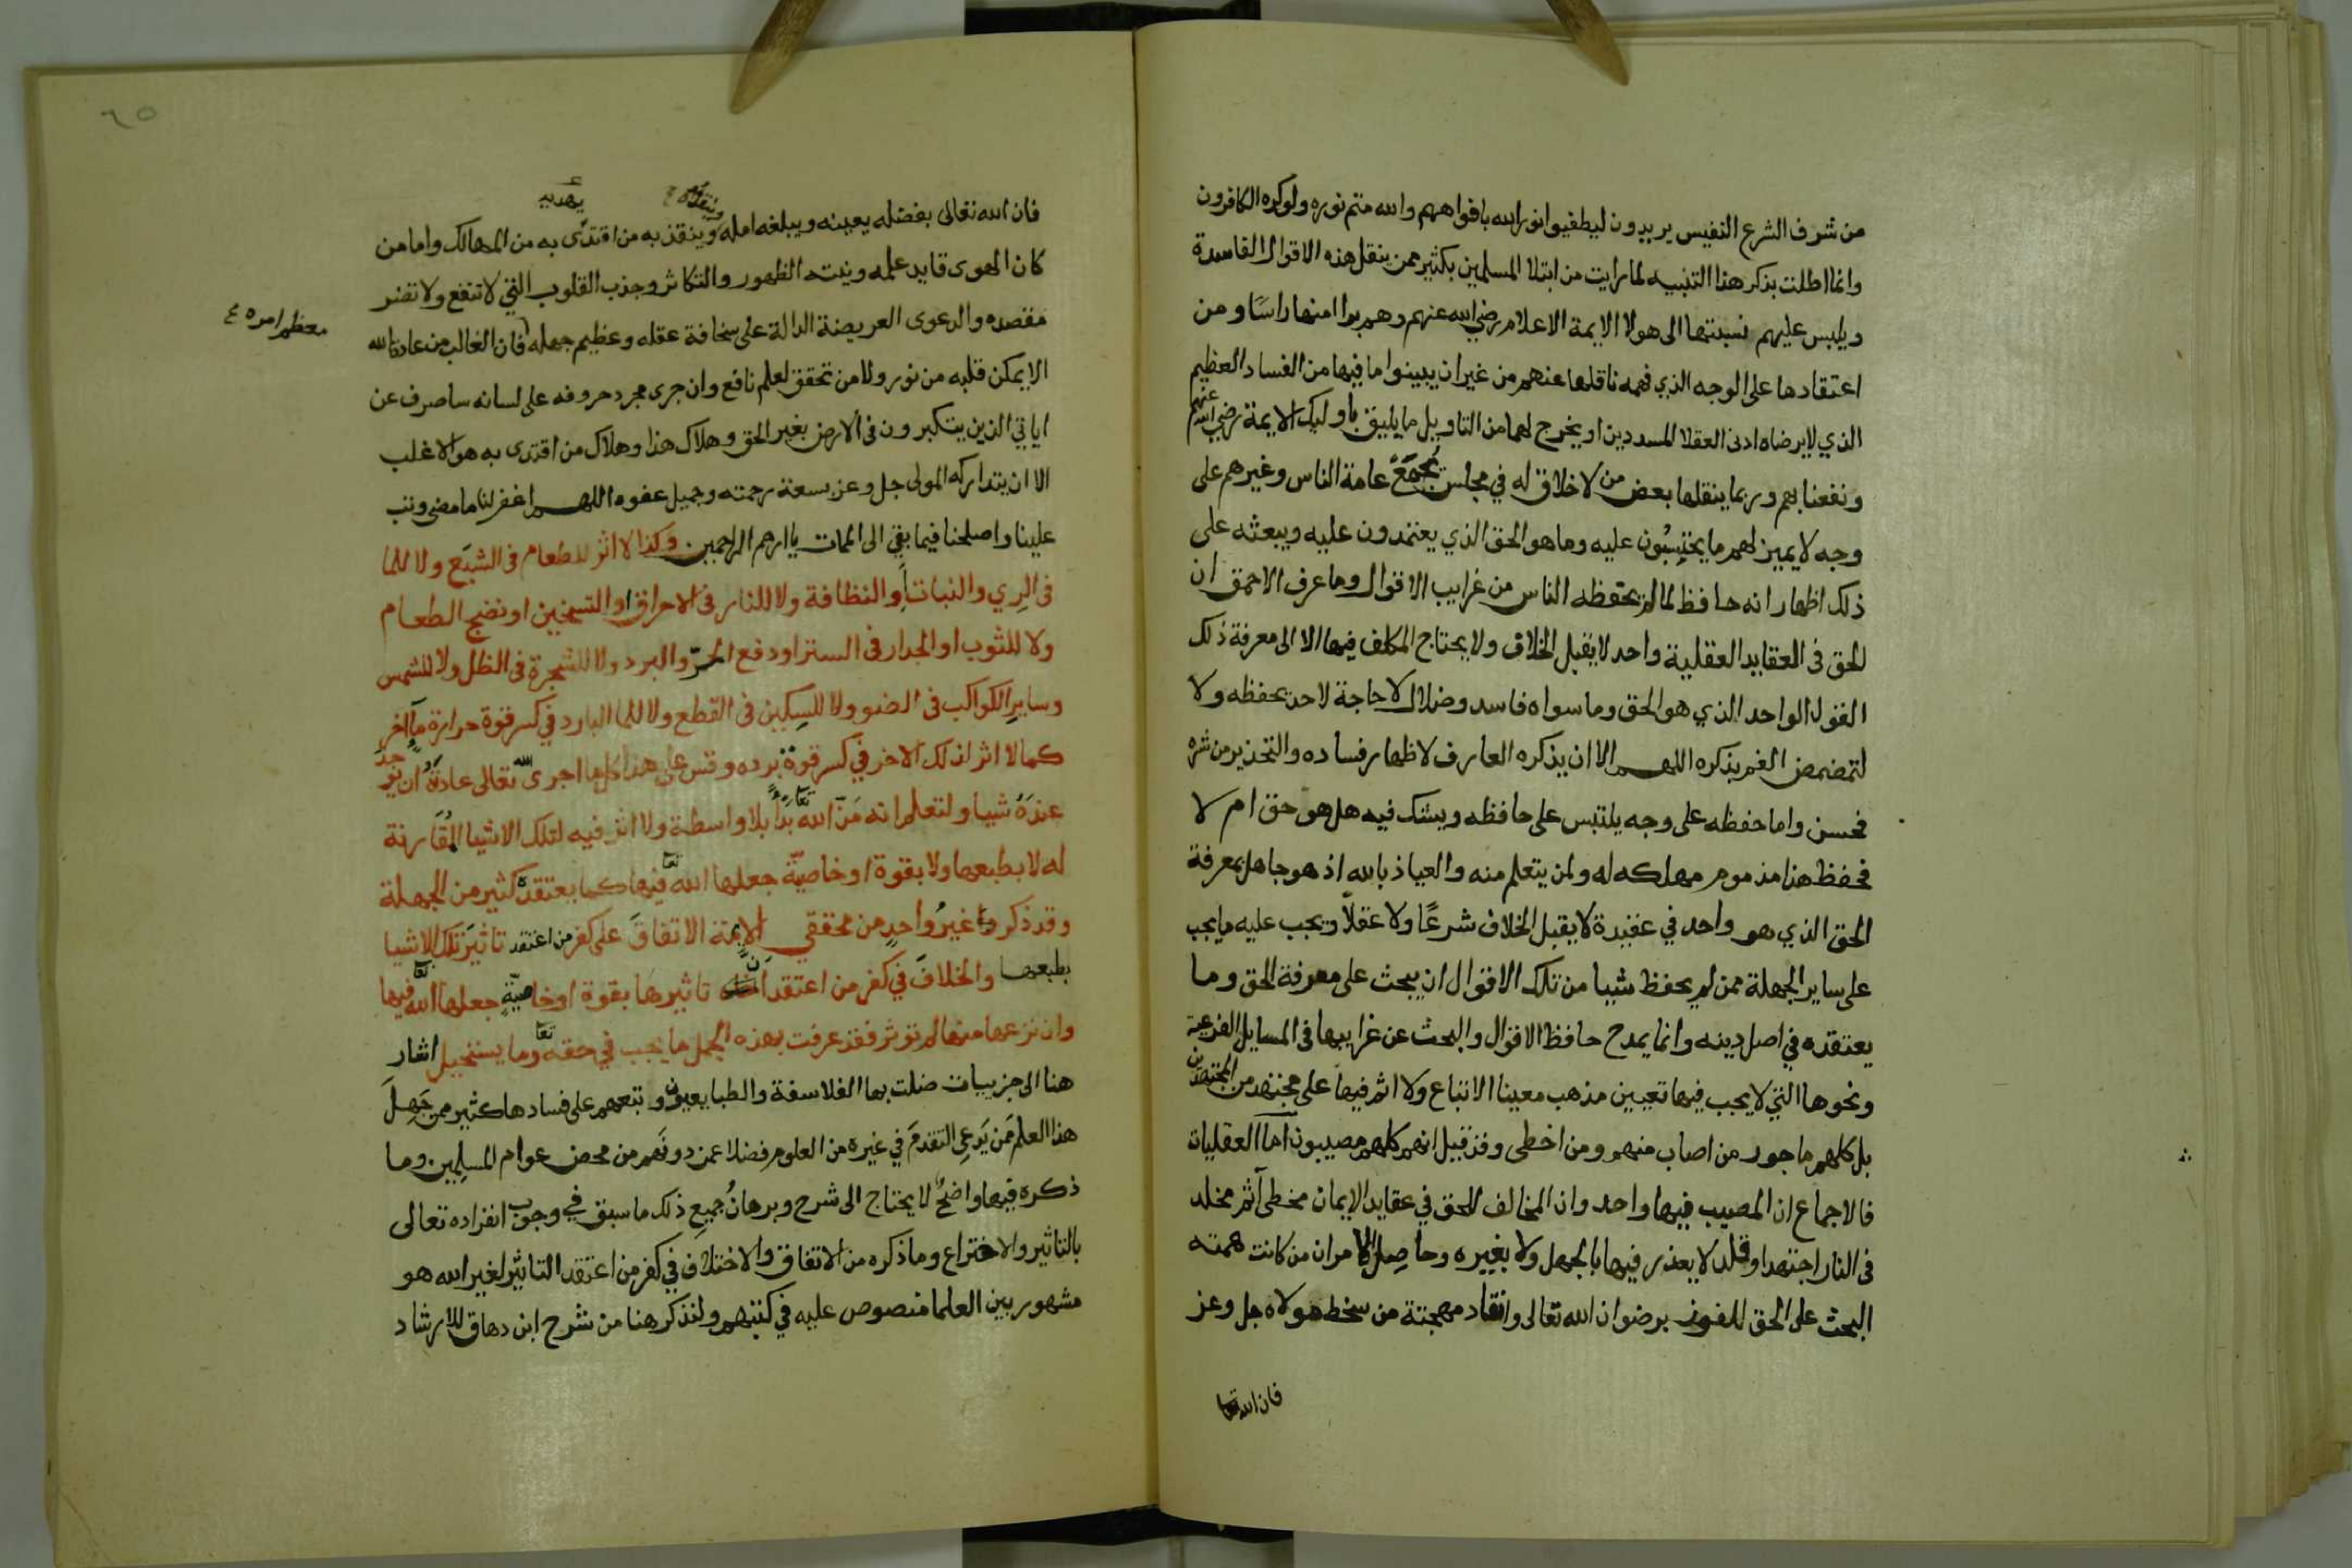 من شرف الشرع النفيس يريدون ليطفيوا نور الله بافواههم والله متم نوره ولو كره الكافرون
وانما اطلت بذكر هذا التنبيه لما رايت من ابتلا المسلمين بكثير ممن ينقل هذه الاقوال الفاسدة
ويلبس عليهم نسبتها الى هولا الايمة الاعلام رضي الله عنهم وهم برا امنها راسًا ومن
اعتقادها على الوجه الذي فهمه ناقلها عنهم من غير ان يبينوا ما فيها من الفساد العظيم
الذي لا يرضاه ادنى العقلا المسددين او يخرج لها من التاويل ما يليق باوليك الايمة رضي الله عنهم
ونفعنا بهم وربما ينقلها بعض من لا خلاق له في مجلس يُجمَعُ عامة الناس وغيرهم على
وجه لا يميز لهم ما يحتسبُون عليه وما هو الحق الذي يعتمدون عليه ويبعثه على
ذلك اظهار انه حافظ لما لم يحفظه الناس من غرايب الاقوال وما عرف الاحمق ان
الحق فى العقايد العقلية واحد لا يقبل الخلاف ولا يحتاج المكلف فيها الا الى معرفة ذلك
القول الواحد الذي هو الحق وما سواه فاسد وضلال لا حاجة لاحد بحفظه ولا
لتمضمض الفم بذكره اللهم الا ان يذكره العارف لاظهار فساده والتحذير من شره
فحسن واما حفظه على وجه يلتبس على حافظه ويشك فيه هل هو حق ام لا
فحفظ هذا مذموم مهلكه له ولمن يتعلم منه والعياذ بالله اذ هو جاهل بمعرفة
الحق الذي هو واحد في عقيدة لا يقبل الخلاف شرعًا ولا عقلاً ويجب عليه ما يجب
على ساير الجهلة ممن لم يحفظ شيبا من تلك الاقوال ان يبحث على معرفة الحق وما
يعتقده في اصل دينه وانما يمدح حافظ الاقوال والبحث عن غرايبها فى المسايل الفرعية
ونحوها التي لا يجب فيها تعيين مذهب معينا الاتباع ولا اثم فيها على مجتهد من المجتهدين
بل كلهم ماجور من اصاب منهم ومن اخطى وقد قيل انهم كلهم مصيبون اما العقليات
فالاجماع ان المصيب فيها واحد وان المخالف للحق في عقايد الايمان مخطى آثم مخلد
فى النار اجتهد او قلد لا يعذر فيها بالجهل ولا بغيره وحاصِل الامر ان من كانت همته
البحث على الحق للفوز برضوان الله تعالى وانقاد مهجتة من سخط مولاه جل وعز
فان الله تعا
٦٥
فان الله تعالى بفضله يعينه ويبلغه امله وينقذ به من اقتدى به من المهالك واما من
كان الهوى قايد علمه ونيته الظهور والتكاثر وجذب القلوب التي لا تنفع ولا تضر
مقصده والدعوى العريضة الدالة على سخافة عقله وعظيم جهله فان الغالب من عادة الله
معظم امره ع
الا يمكن قلبه من نور ولا من تحقق لعلم نافع وان جرى مجرد حروفه على لسانه ساصرف عن
اياتي الذين يتكبرون فى الارض بغير الحق وهلاك هذا وهلاك من اقتدى به هو الاغلب
الا ان يتداركه المولى جل وعز بسعة رحمته وجميل عفوه اللهم اغفر لنا ما مضى وتب
علينا واصلحنا فيما بقي الى الممات يا ارحم الراحمين. وكذا لا اثر للطعام فى الشبَع ولا للما
فى الرِي والنبات او النظافة ولا للنار فى الاحراق او التسخين او نضج الطعام
ولا للثوب او الجدار فى الستر او دفع الحرّ والبرد ولا للشجرة فى الظل ولا للشمس
وساير الكواكب فى الضو ولا للسِكين فى القطع ولا للما البارد في كسر قوة حرارة مآ اخر
كما لا اثر لذلك الاخر في كسر قوة برده وقس على هذا كل ما اجرى الله تعالى عادته ان يوجد
عندَهُ شيا ولتعلم انه مَنّ الله بدًا بلا واسطة ولا اثر فيه لتلك الاشيا المُقَارنة
له لا بطبعها ولا بقوة او خاصيّة جعلها الله تعا فيها كما يعتقده كثير من الجهلة
وقد ذكر غيرُ واحدٍ من محققي الايمة الاتفاقَ على كفر من اعتقد تاثيرَ تلك الاشيا
بطبعها والخلافَ في كفر من اعتقد ان تاثيرها بقوة او خاصيّةٍ جعلها الله تعا فيها
وان نزعها منها لم توثر فقد عرفت بهذه الجمل ما يجب في حقه تعا وما يستحيل اشار
هنا الى جزييات ضلت بها الفلاسفة والطبايعيون وتبعهم على فسادها كثير ممن جَهِلَ
هذا العلم ممن يَدعِي التقدمَ في غيره من العلوم فضلا عمن دونَهم من محض عوام المسلِمين وما
ذكره فيها واضحٌ لا يحتاج الى شرح وبرهانُ جميعِ ذلك ما سبق في وجوب انفراده تعالى
بالتاثير والاختراع وما ذكره من الاتفاق والاختلاف في كفر من اعتقد التاثير لغير الله هو
مشهور بين العلما منصوص عليه في كتبهم ولنذكر هنا من شرح ابن دهاق للارشاد